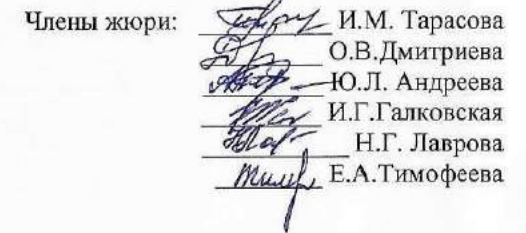 Члены жюри: И.М. Тарасова
О.В.Дмитриева
Ю.Л. Андреева
И.Г.Галковская
Н.Г. Лаврова
Е.А.Тимофеева